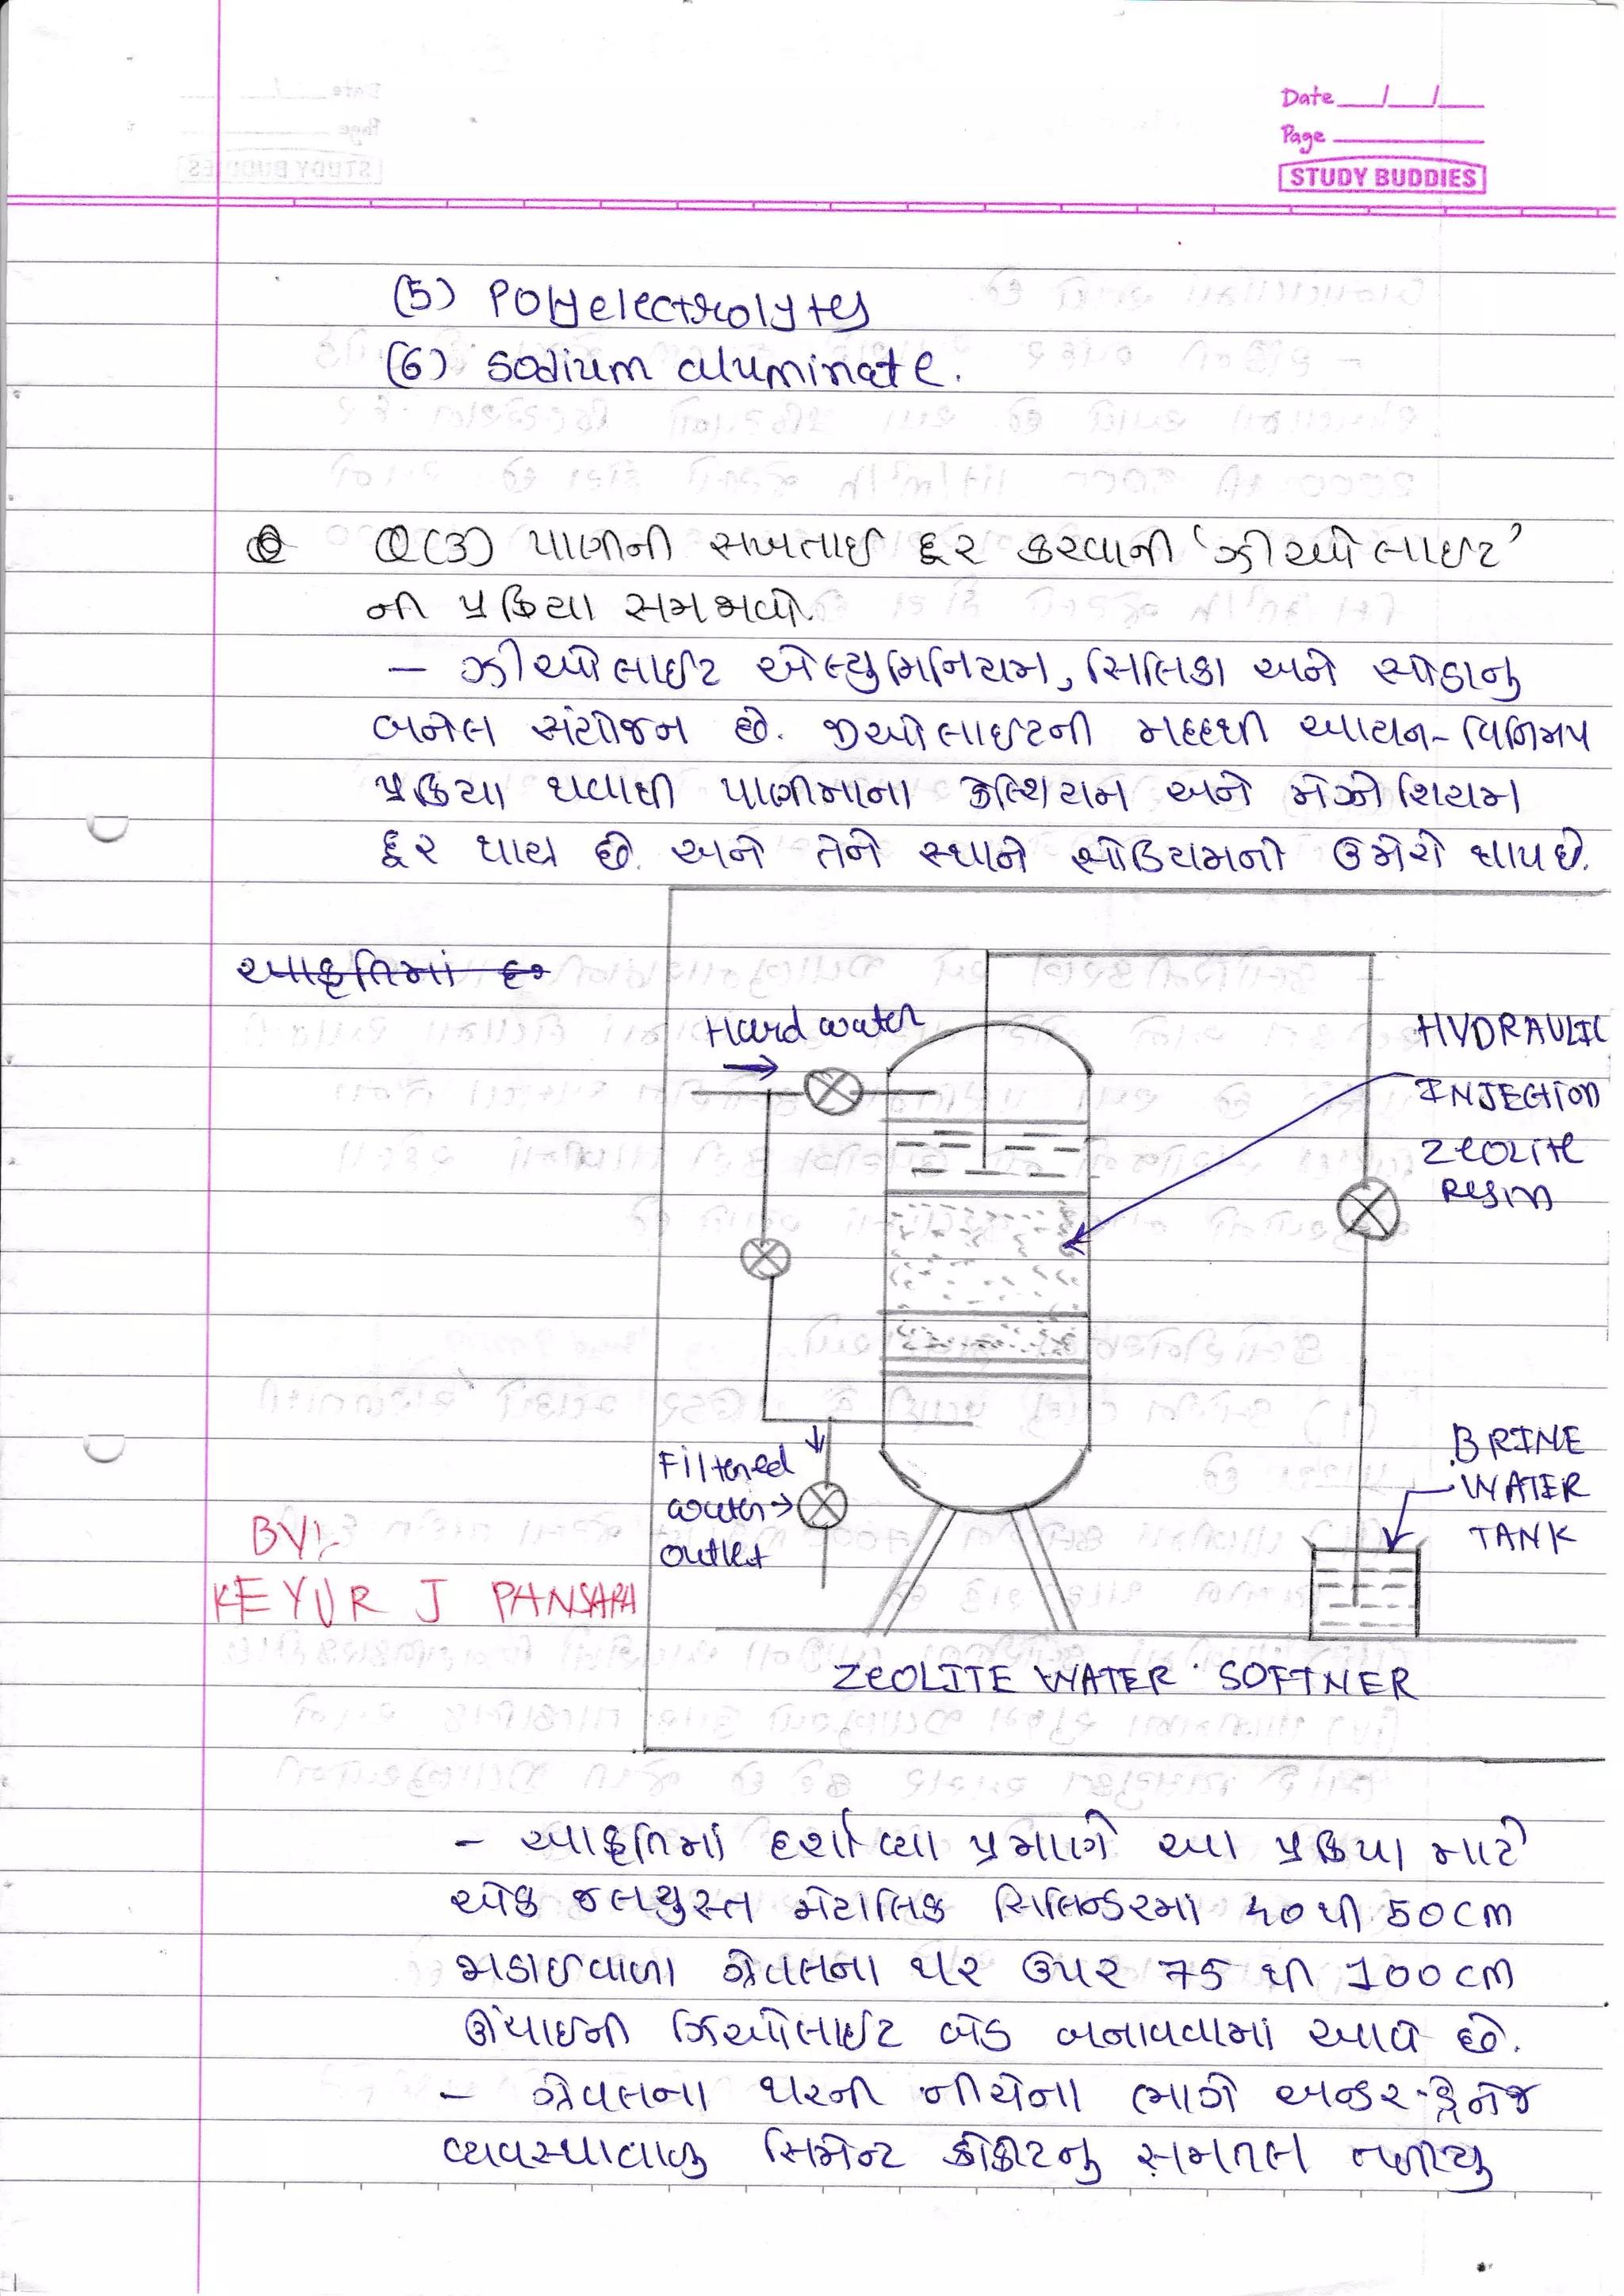 Date __/__/__
Page
STUDY BUDDIES
(5) Polyelectrolytes
(6) Sodium aluminate.
Q(3) પાણીની સખતાઈ દૂર કરવાની 'ઝીઓલાઈટ'
ની પ્રક્રિયા સમજાવો.
– ઝીઓલાઈટ એલ્યુમિનિયમ, સિલિકા અને સોડાનુ
બનેલ સંયોજન છે. જીઓલાઈટની મદદથી આયન-વિનિમય
પ્રક્રિયા થવાથી પાણીમાના કેલ્શિયમ અને મેગ્નેશિયમ
દૂર થાય છે. અને તેને સ્થાને સોડિયમનો ઉમેરો થાય છે.
આકૃતિમાં
Hard water
HYDRAULIC
INJECTION
Zeolite
Resin
Filtered
water
outlet
BRINE
WATER
TANK
BY:-
KEYUR J PANSARA
ZEOLITE WATER SOFTNER
– આકૃતિમાં દર્શાવ્યા પ્રમાણે આ પ્રક્રિયા માટે
એક જલચુસ્ત મેટાલિક સિલિન્ડરમાં 40 થી 50 cm
જાડાઈવાળા ગ્રેવલના થર ઉપર 75 થી 100 cm
ઊંચાઇની ઝિઓલાઈટ બેડ બનાવવામાં આવે છે.
– ગ્રેવલના થરની નીચેના ભાગે અન્ડર-ડ્રેનેજ
વ્યવસ્થાવાળુ સિમેન્ટ કોંક્રીટનુ સમતલ તળીયુ